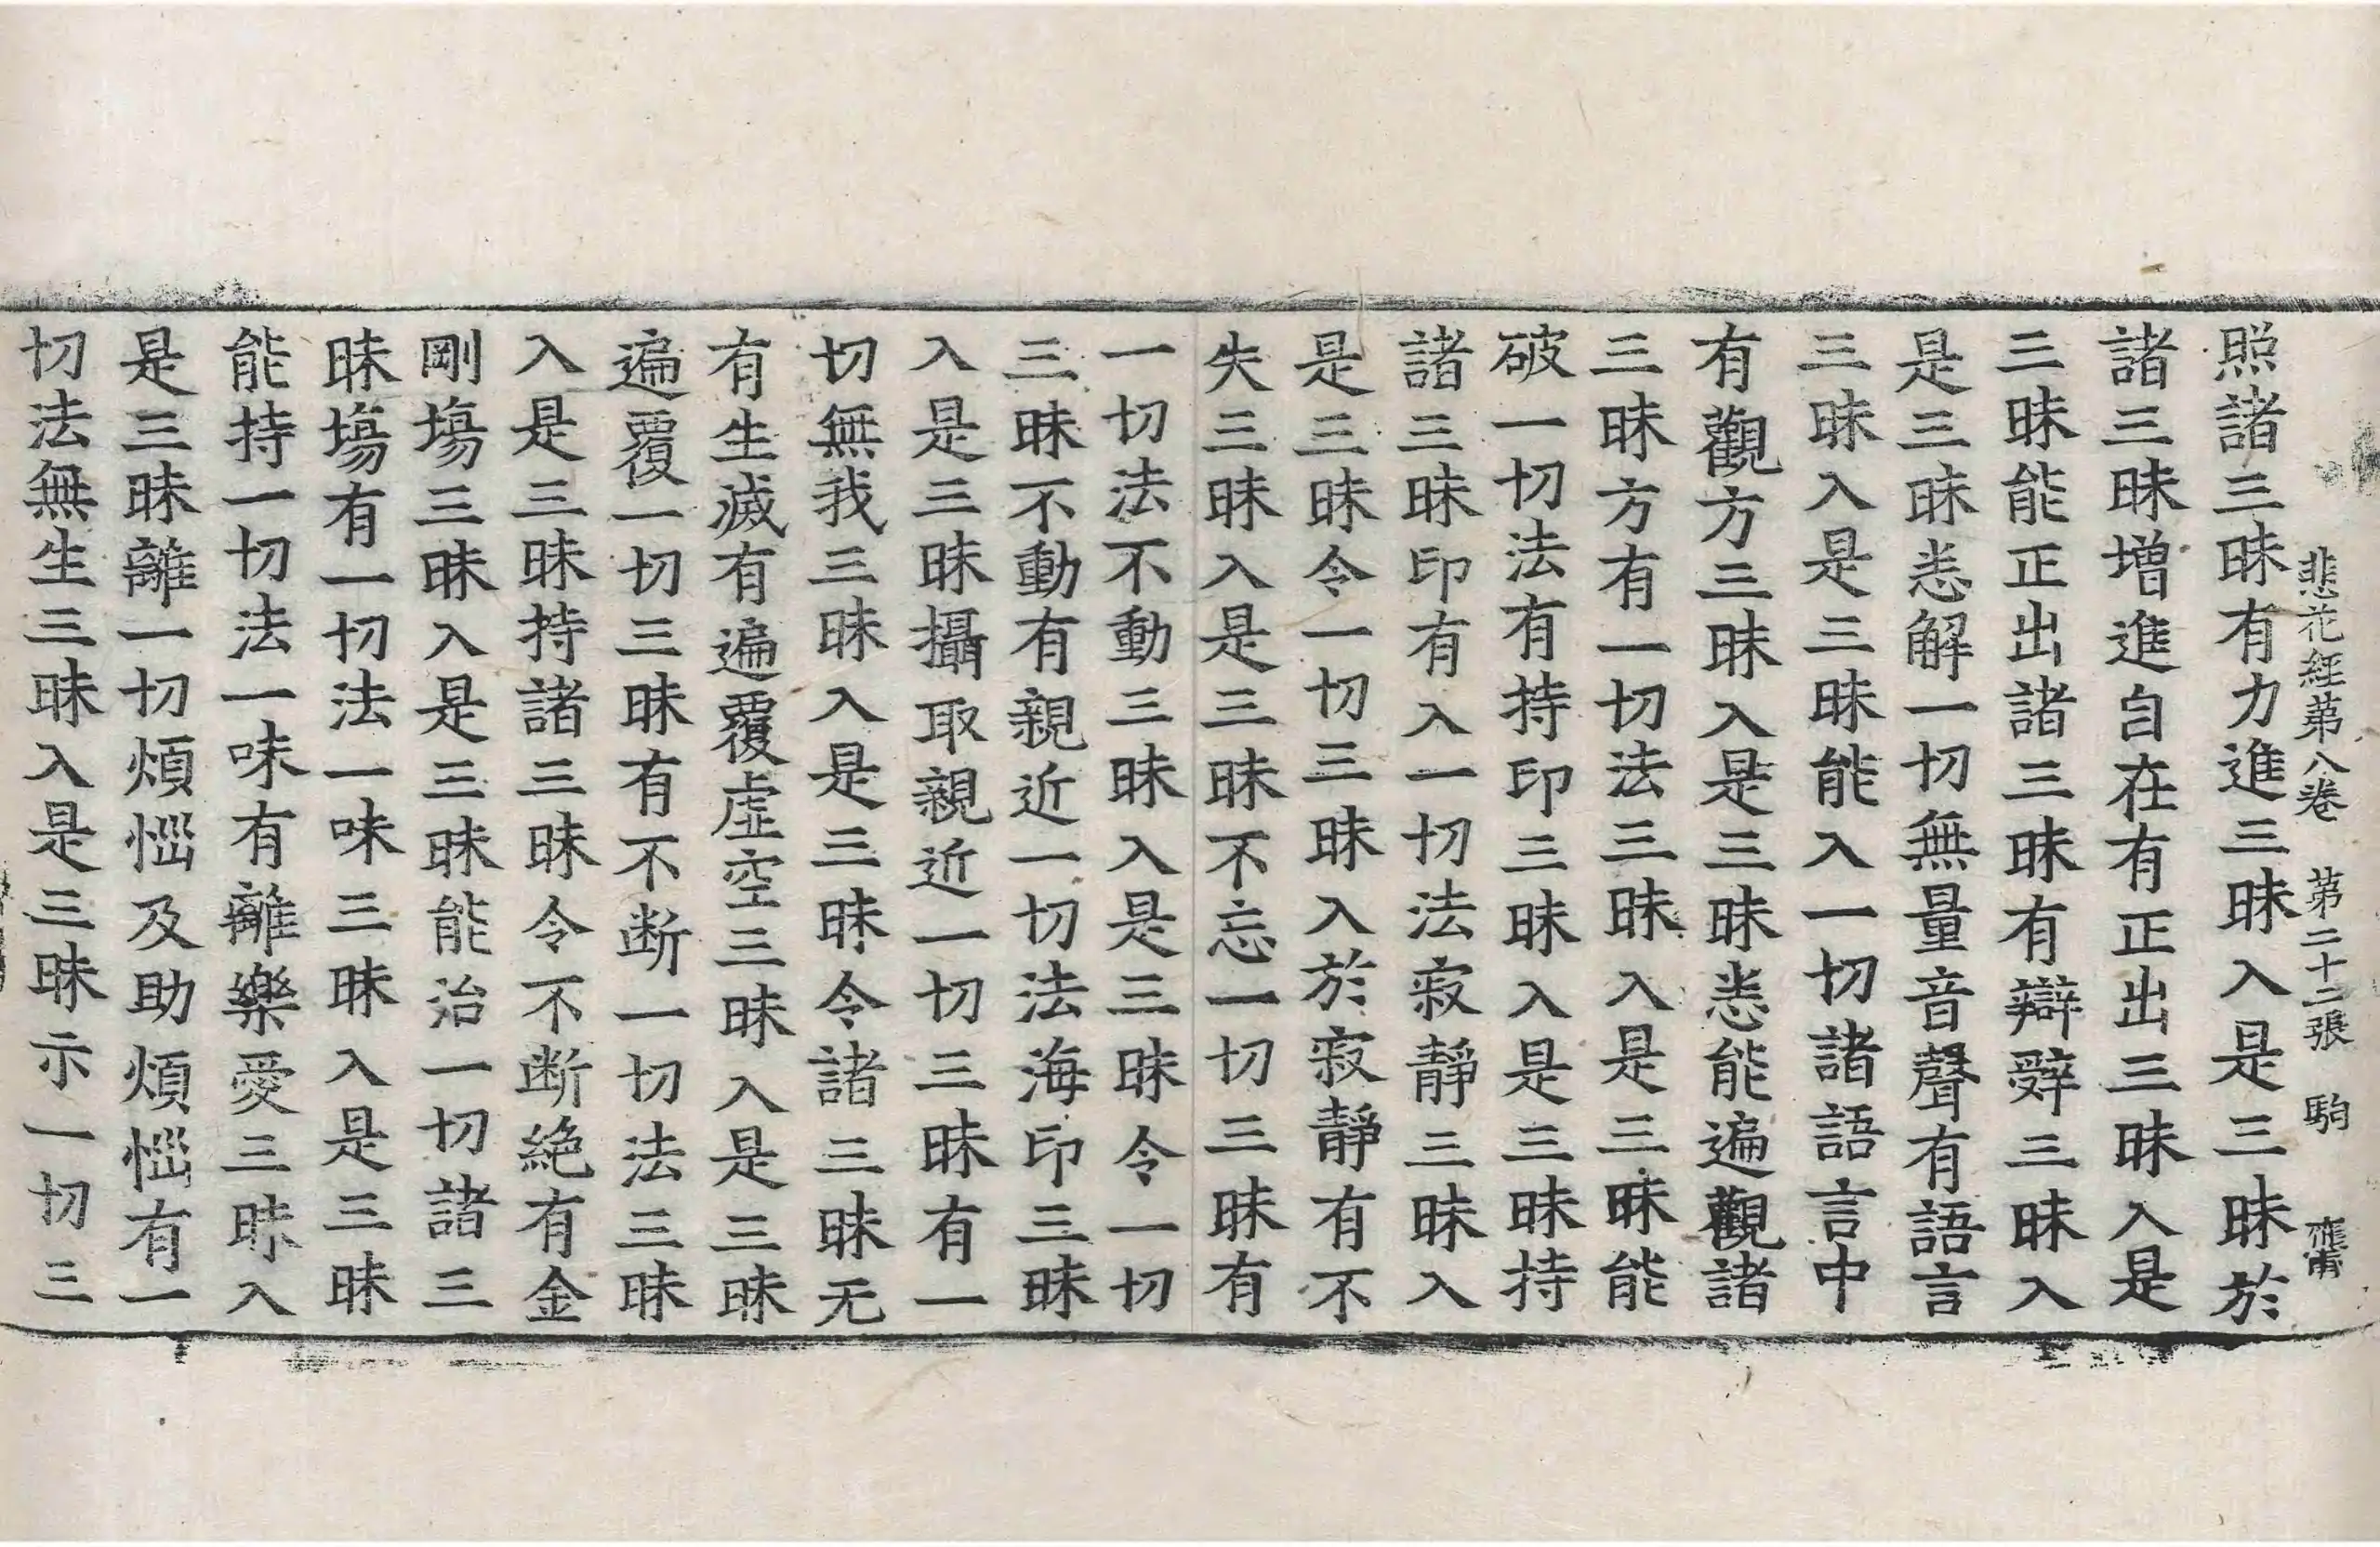 悲花經第八卷　第二十二張　駒
照諸三昧有力進三昧入是三昧於
諸三昧增進自在有正出三昧入是
三昧能正出諸三昧有辯辭三昧入
是三昧悉解一切無量音聲有語言
三昧入是三昧能入一切諸語言中
有觀方三昧入是三昧悉能遍觀諸
三昧方有一切法三昧入是三昧能
破一切法有持印三昧入是三昧持
諸三昧印有入一切法寂靜三昧入
是三昧令一切三昧入於寂靜有不
失三昧入是三昧不忘一切三昧有
一切法不動三昧入是三昧令一切
三昧不動有親近一切法海印三昧
入是三昧攝取親近一切三昧有一
切無我三昧入是三昧令諸三昧无
有生滅有遍覆虛空三昧入是三昧
遍覆一切三昧有不断一切法三昧
入是三昧持諸三昧令不断絶有金
剛塲三昧入是三昧能治一切諸三
昧塲有一切法一味三昧入是三昧
能持一切法一味有離樂愛三昧入
是三昧離一切煩惱及助煩惱有一
切法無生三昧入是三昧示一切三